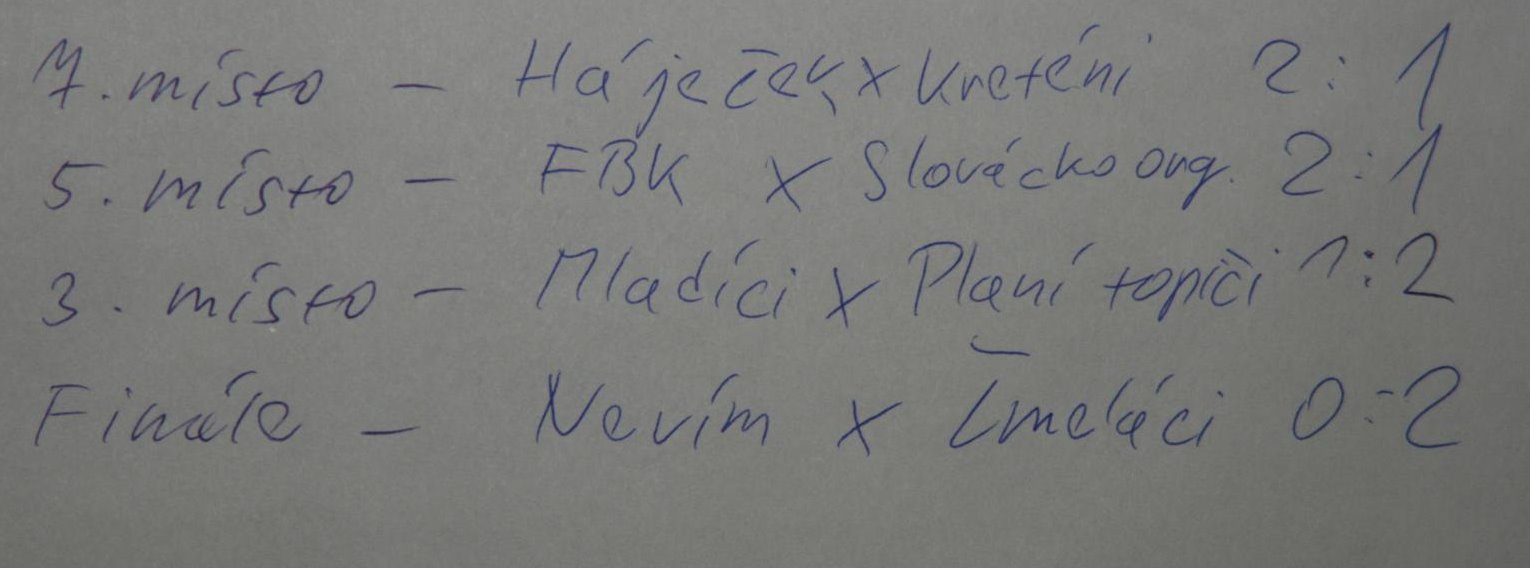 7. místo - Háječek x kreténi 2:1
5. místo - FBK x Slovácko org. 2:1
3. místo - Mladíci x Planí topiči 1:2
Finále - Nevím x Žmeláci 0:2